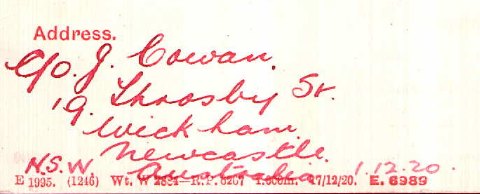 Address.
C/o. J. Cowan.
19. Throsby St.
Wickham
Newcastle.
N.S.W Australia 1.12.20.
E 1995. (1246) Wt. W 2881—R.P. 6207 1.000m. 17/12/20. E. 6989